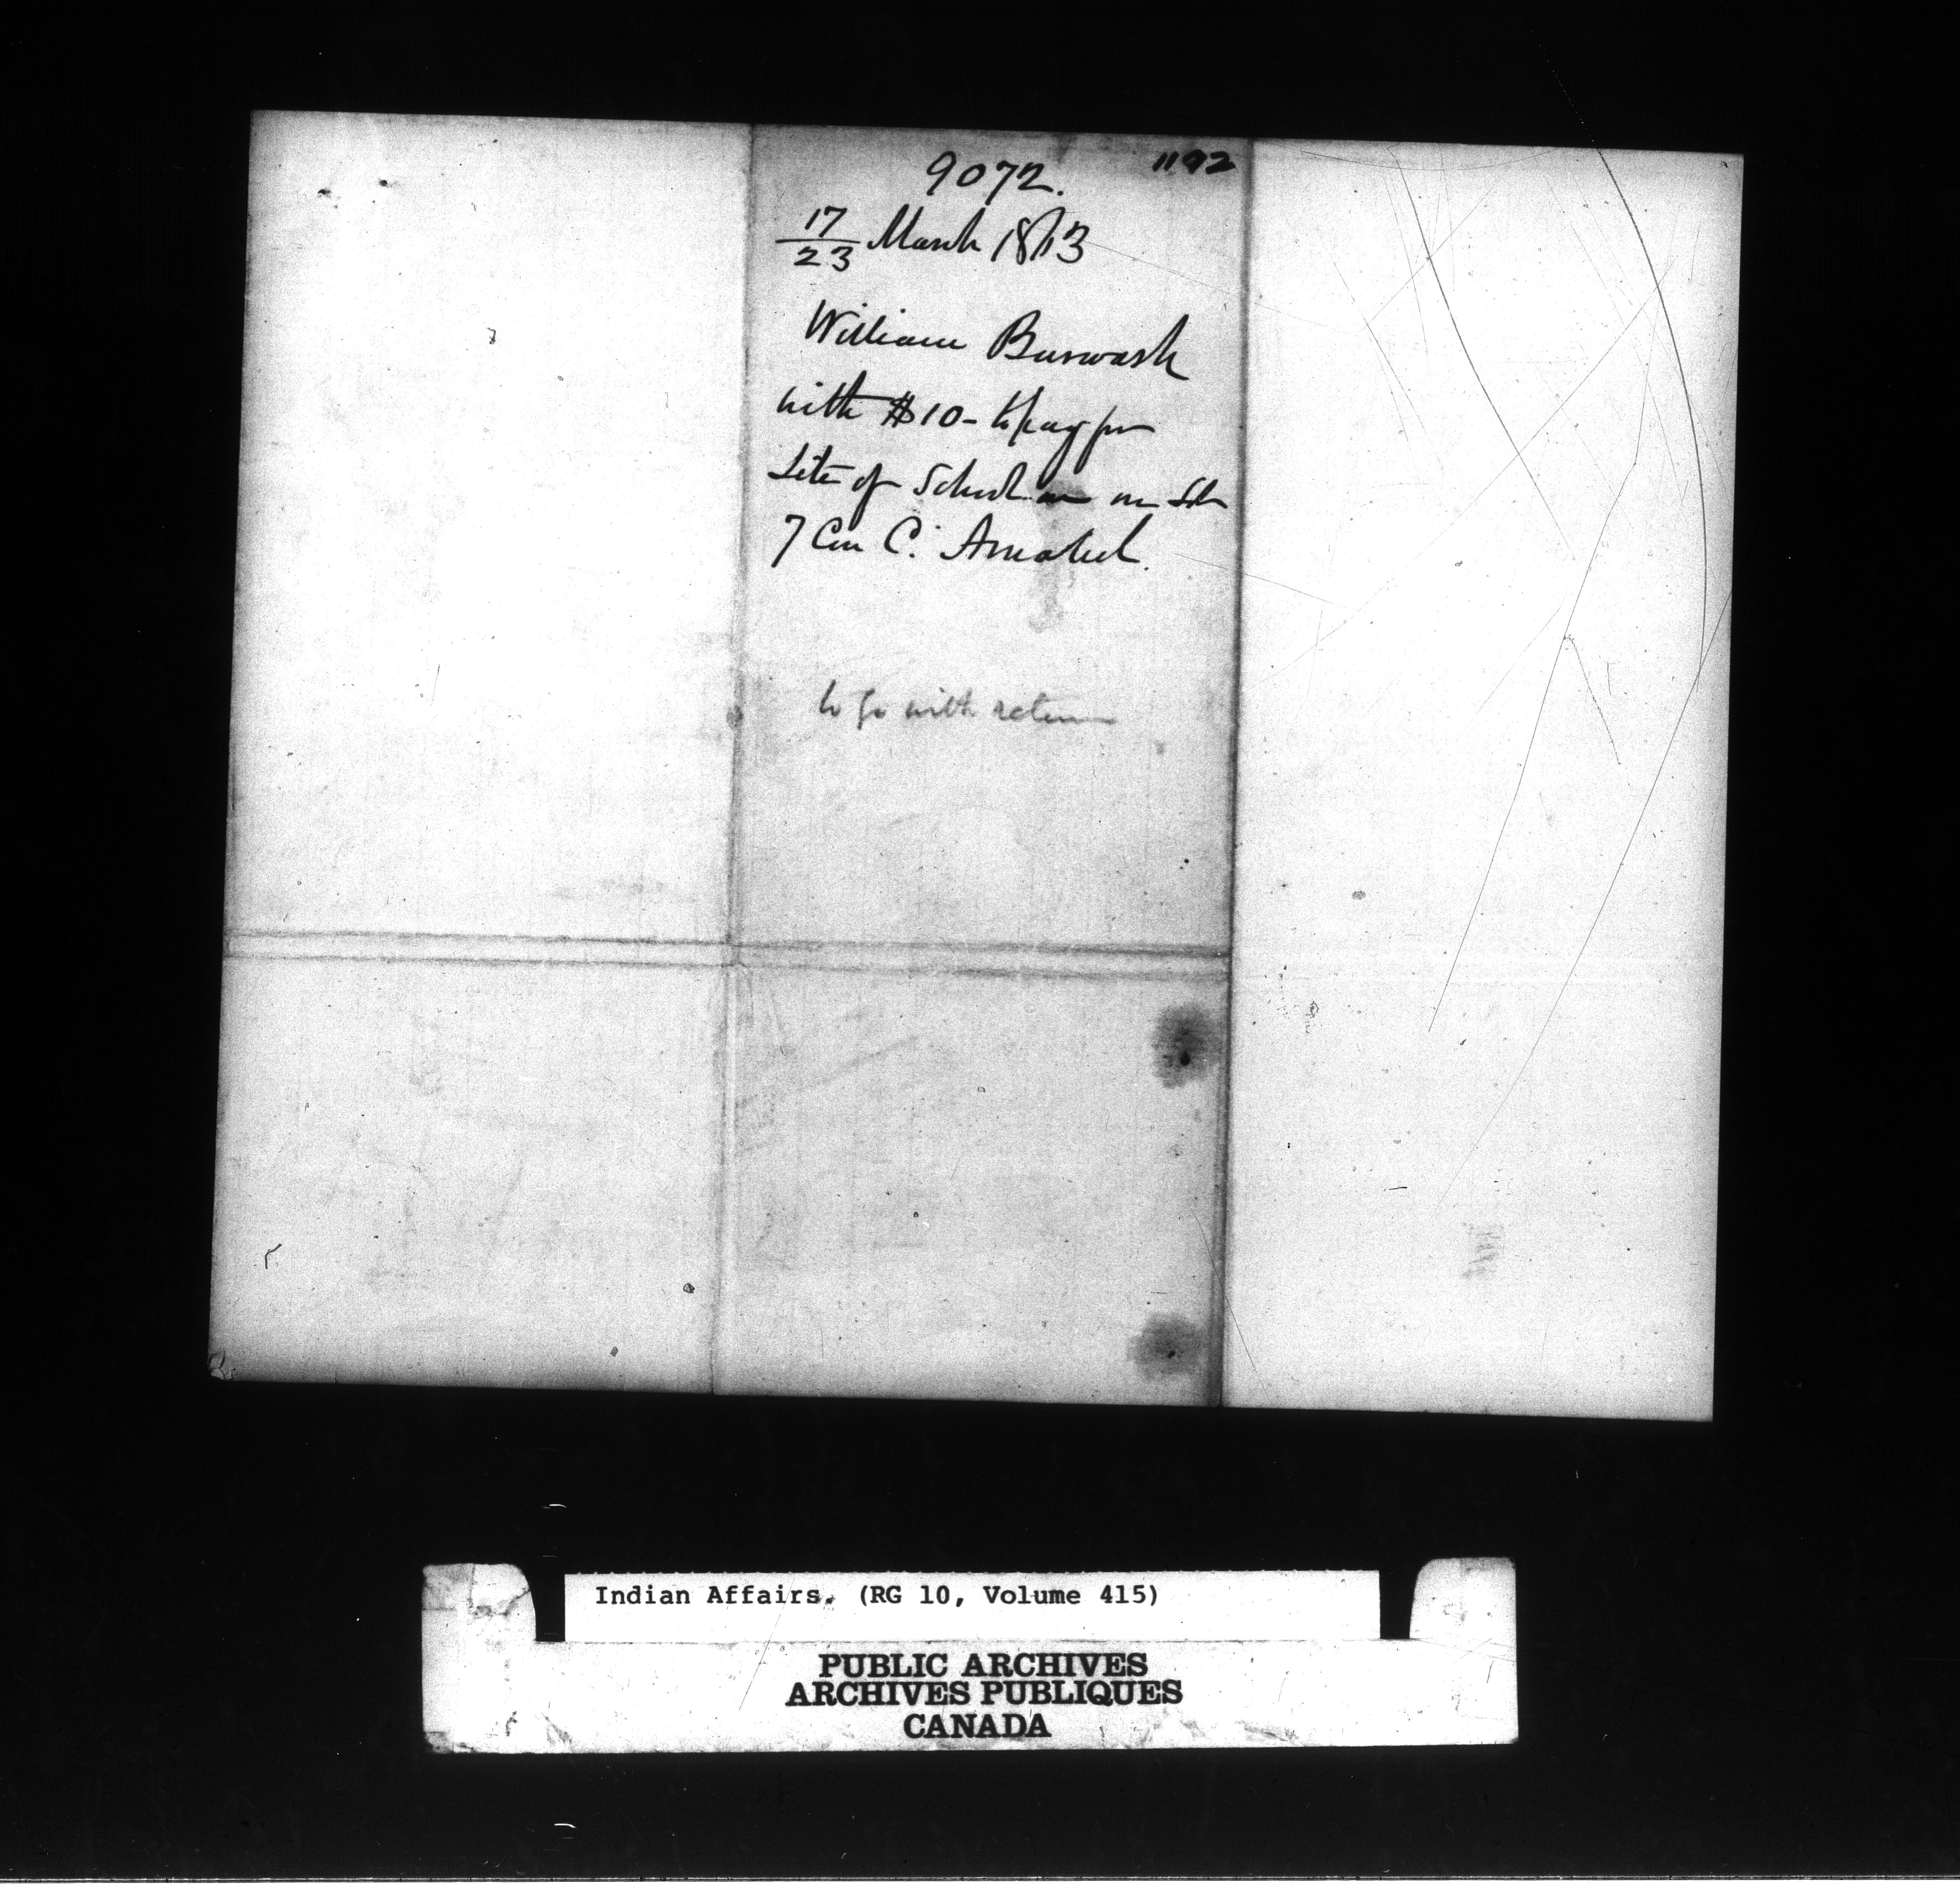 9072.
1192
17/23 March 1873
William Burwash
with $10 - to pay for
Site of School on
7 Con C. Amabel.
to go with return
Indian Affairs. (RG 10, Volume 415)
PUBLIC ARCHIVES
ARCHIVES PUBLIQUES
CANADA